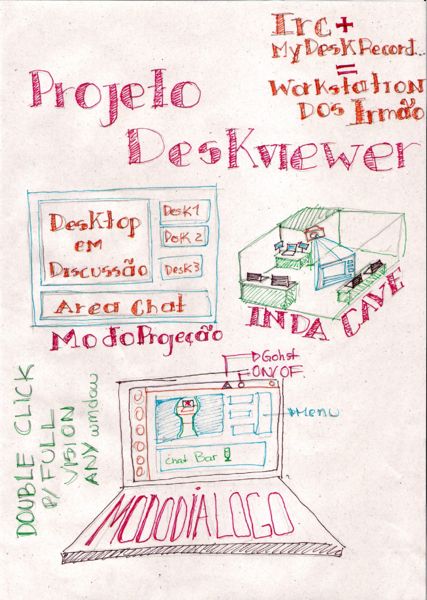 Irc +
MyDeskRecord...
=
Workstation
Dos Irmão
Projeto
Deskviewer
Desktop
em
Discussão
Desk 1
Desk 2
Desk 3
Area Chat
Modo Projeção
IN DA CAVE
DGohst
ON/OF.
Menu
Chat Bar
DOUBLE CLICK
P/ FULL
VISION
ANY window
MODODIALOGO